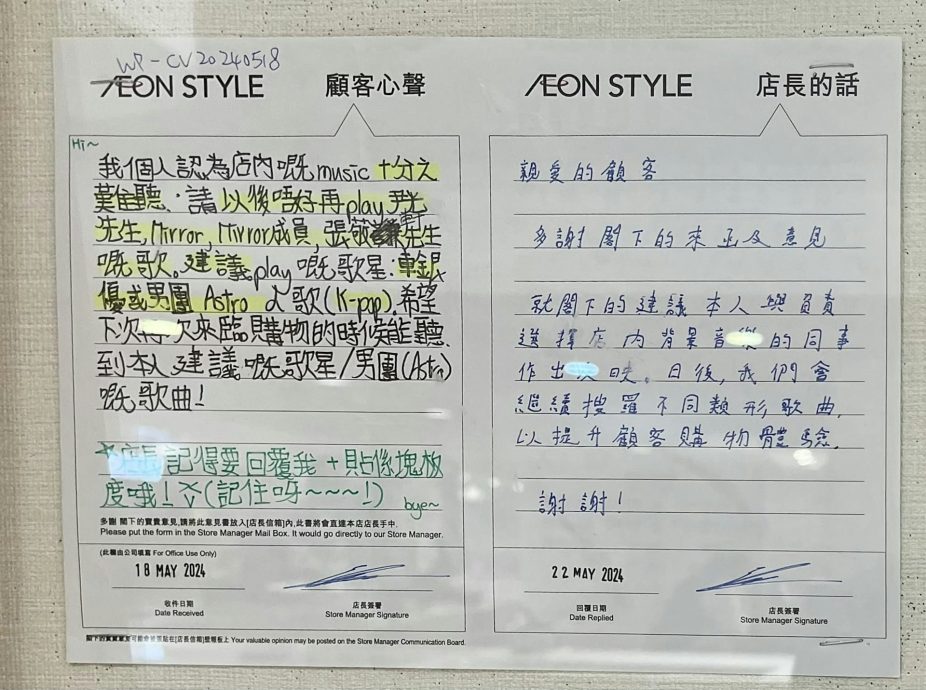 WP-CV20240518
ÆON STYLE
顧客心聲
Hi~
我個人認為店內嘅music十分之
難聽，請以後唔好再play尹光
先生, Mirror, Mirror成員, 張敬軒先生
嘅歌。建議play嘅歌星:車銀
優或男團 Astro d歌(K-pop).希望
下次再次來臨購物的時候能聽
到本人建議嘅歌星/男團(Astro)
嘅歌曲!
店長記得要回覆我+貼係塊板
度哦! (記住呀~~~!)
bye~
多謝 閣下的寶貴意見,請將此意見書放入[店長信箱]內,此書將會直達本店店長手中.
Please put the form in the Store Manager Mail Box. It would go directly to our Store Manager.
(此欄由公司填寫 For Office Use Only)
18 MAY 2024
收件日期
Date Received
店長簽署
Store Manager Signature
閣下的寶貴意見可能會被張貼在[店長信箱]壁報板上 Your valuable opinion may be posted on the Store Manager Communication Board.
ÆON STYLE
店長的話
親愛的顧客
多謝閣下的來函及意見
就閣下的建議本人與負責
選擇店內背景音樂的同事
作出反映。日後,我們會
繼續搜羅不同類形歌曲,
以提升顧客購物體驗.
謝謝!
22 MAY 2024
回覆日期
Date Replied
店長簽署
Store Manager Signature